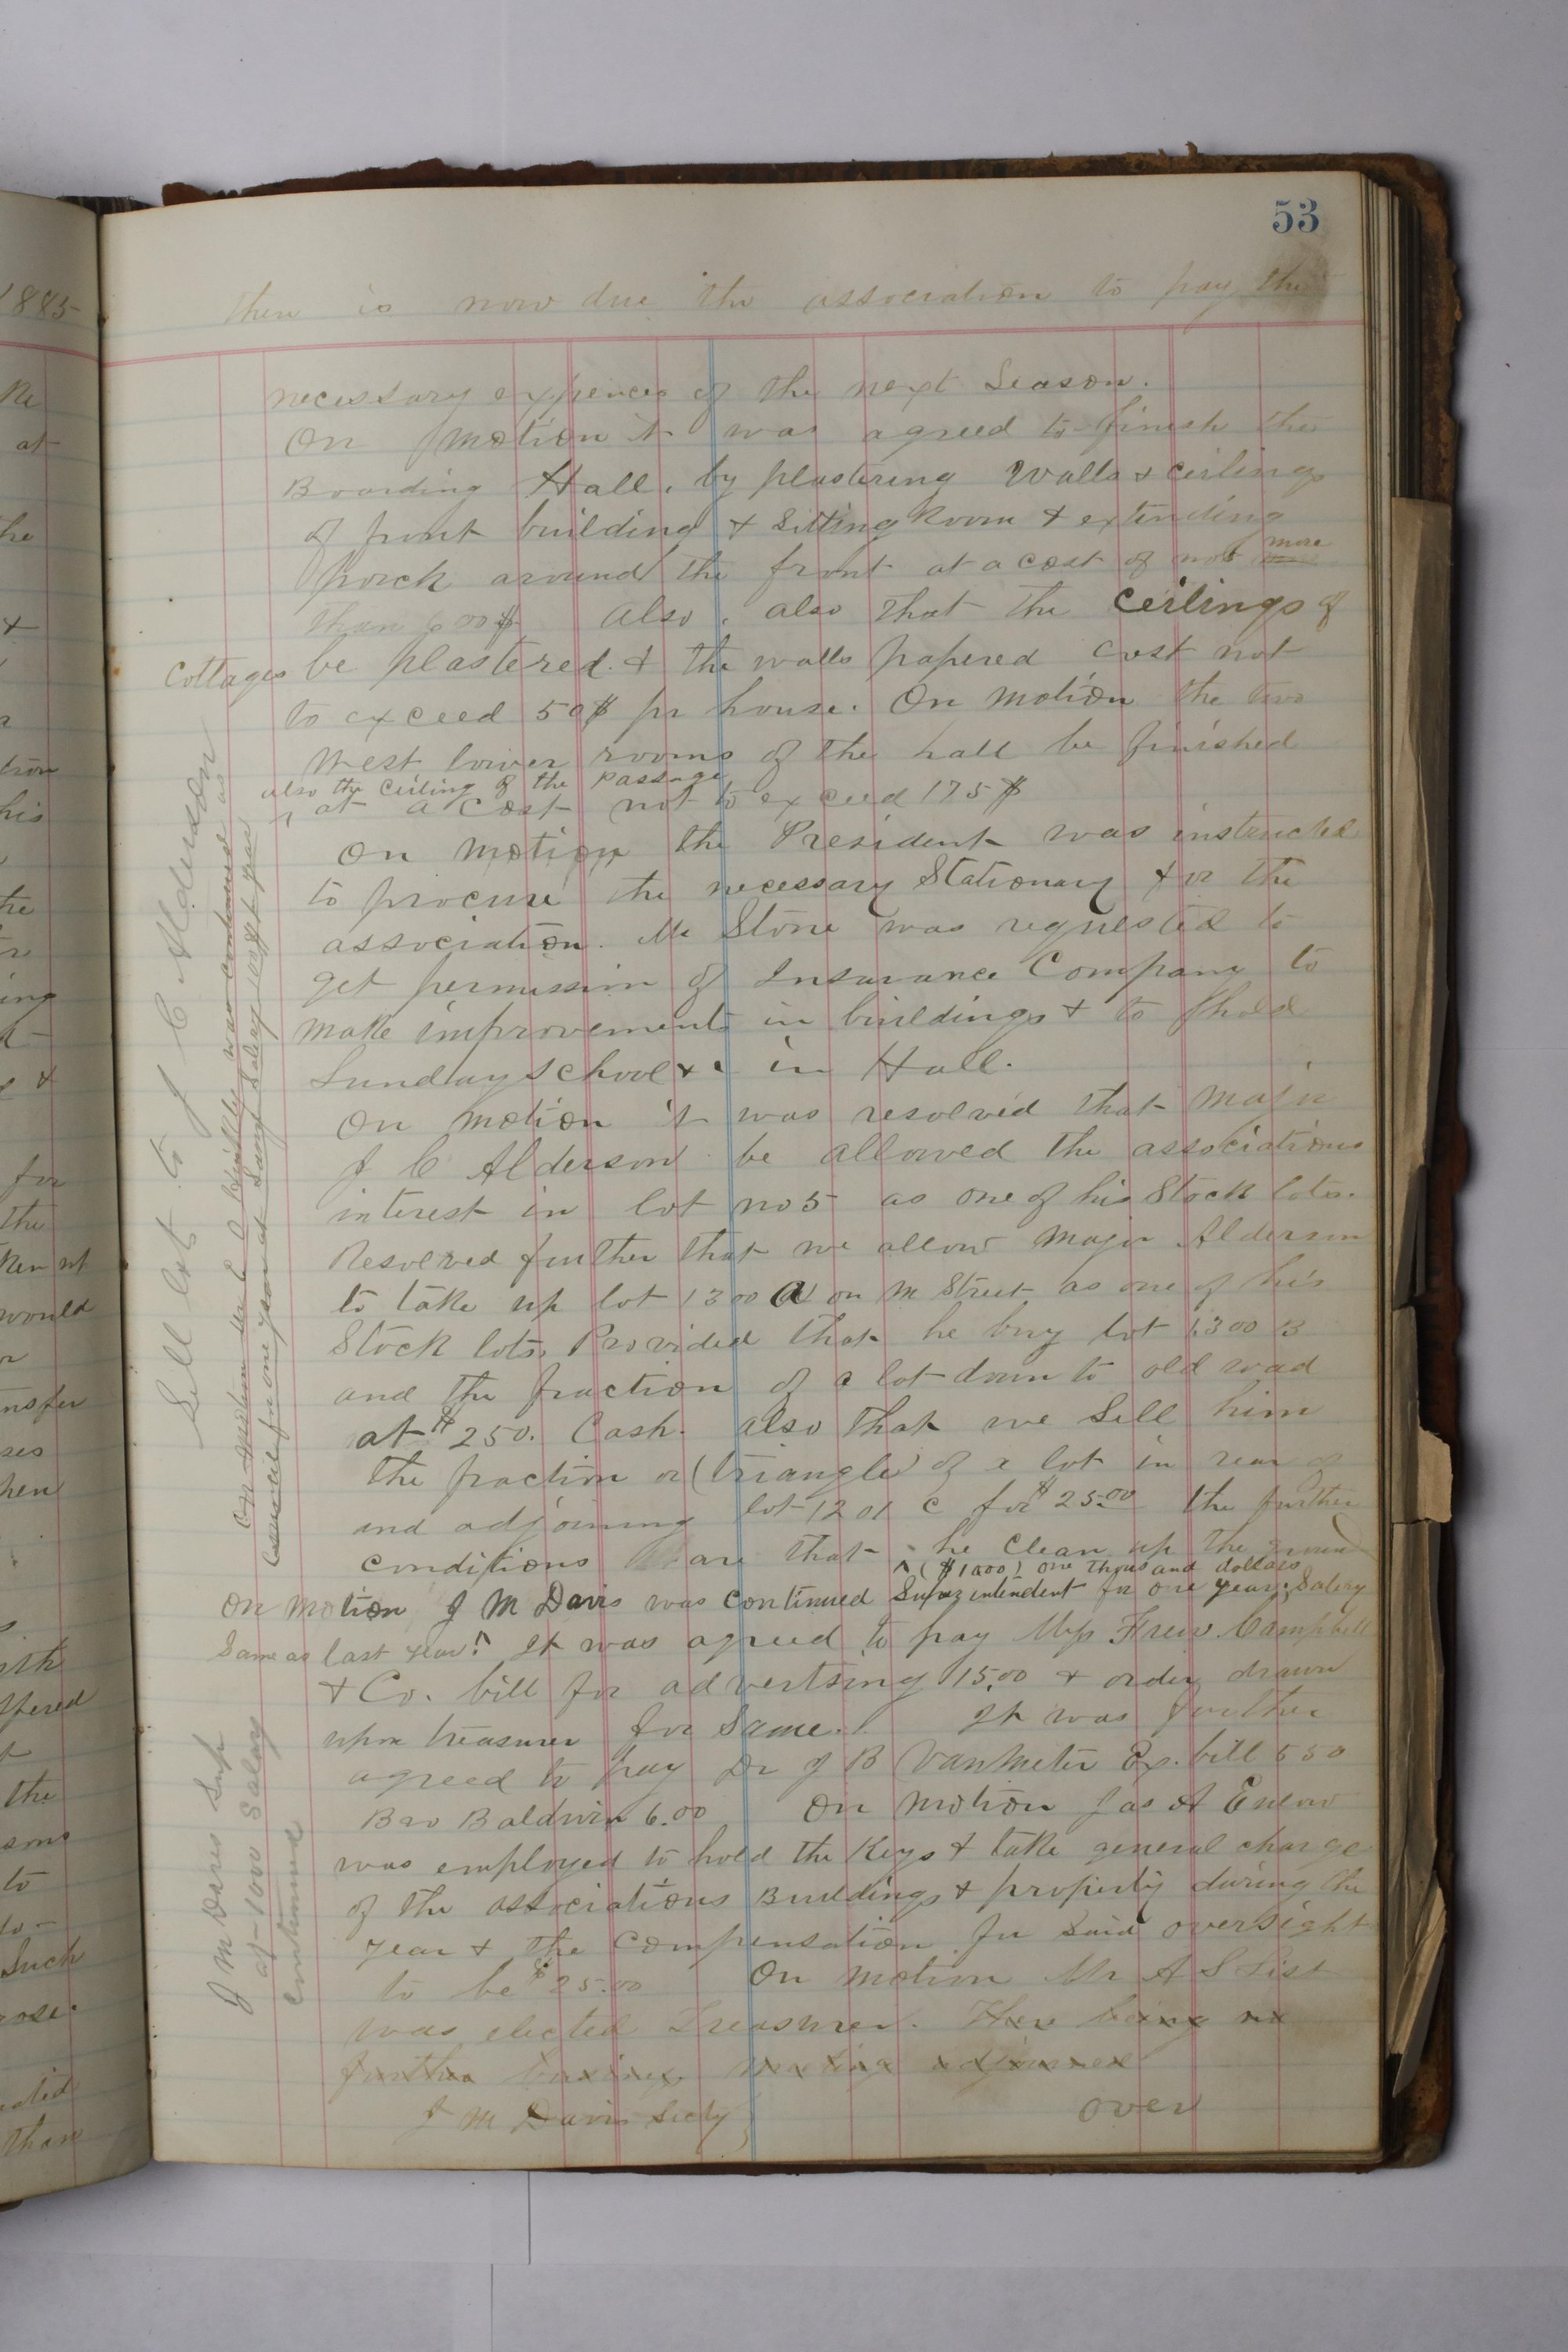 53
then is now due the association to pay the
necessary expences of the next Season.
On motion it was agreed to finish the
Boarding Hall, by plastering Walls & ceilings
of front building & Sitting Room & extending
porch around the front at a cost of not more
than 600$ also, also that the Ceilings of
Cottages be plastered. & the walls papered cost not
to exceed 50$ pr house. On motion the two
West lower rooms of the hall be finished
also the ceiling of the passage
at a cost not to exceed 175$
On motion the President was instructed
to procure the necessary Stationary for the
association. Mr Stone was requested to
get permission of Insurance Company to
make improvements in buildings & to hold
Sunday School &c in Hall.
On motion it was resolved that Major
J C Alderson be allowed the associations
interest in lot no 5 as one of his Stock lots.
Resolved further that we allow Major Alderson
to take up lot 1300 a on M Street as one of his
Stock lots, Provided that he buy lot 1300 B
and the fraction of a lot down to old road
at $250. Cash. also that we Sell him
the fraction or (triangle) of a lot in rear of
and adjoining lot 1201 C for $25.00 the further
conditions are that he Clean up the ground
($1000) one thousand dollars
On motion J M Davis was continued Superintendent for one year; Salery
Same as last year. It was agreed to pay Mess Frew Campbell
& Co. bill for advertsing 15.00 & order drawn
upon treasurer for Same. It was further
agreed to pay Dr J B VanMeter Ex. bill 550
Bro Baldwin 6.00 On motion Jas A Enlow
was employed to hold the Keys & take general charge
of the associations Buildings & property during the
year & the Compensation for Said oversight
to be $25.00 On motion Mr A S List
was elected Treasurer. There being no
further business meeting adjourned
J M Davis Secty
over
Sell lot to J C Alderson
On motion Mr C A was continued as
for one year at Same Salery last year
J M Davis Sup
at 1000 Salary
continued
1885